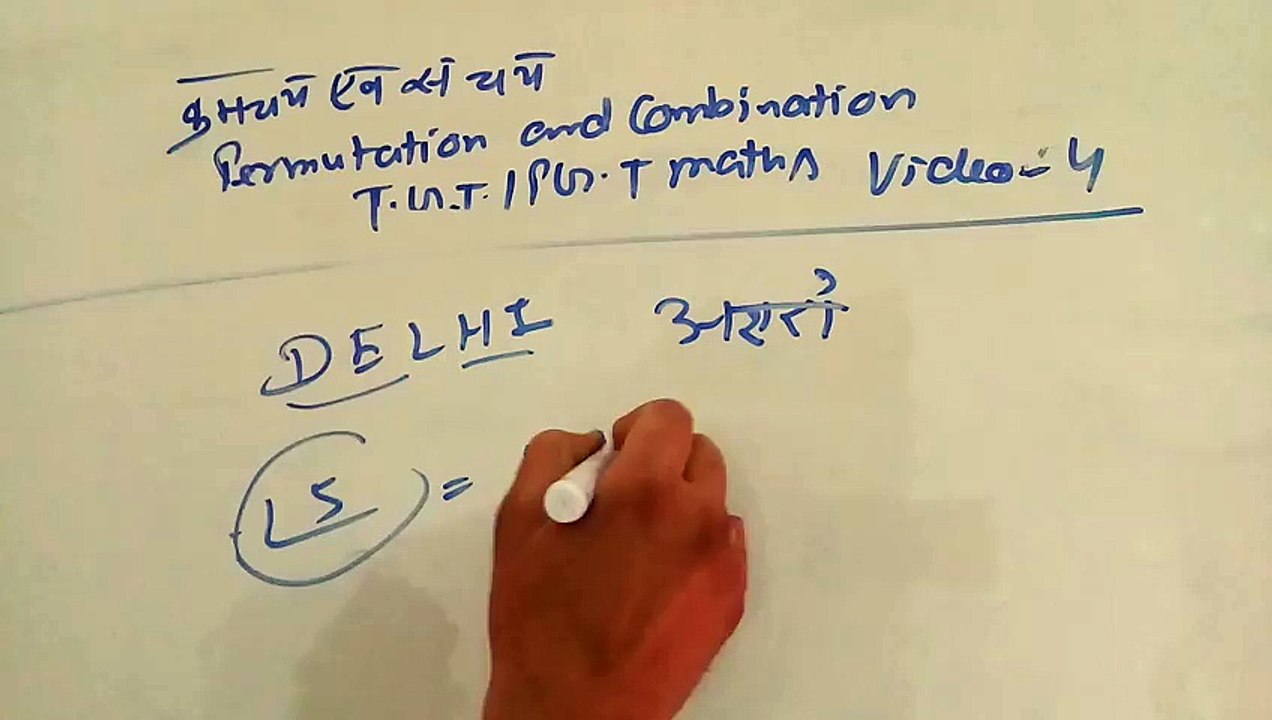 क्रमचय एवं संचय
Permutation and Combination
T.G.T. / P.G.T maths Video - 4
DELHI अक्षरों
⌊5 =